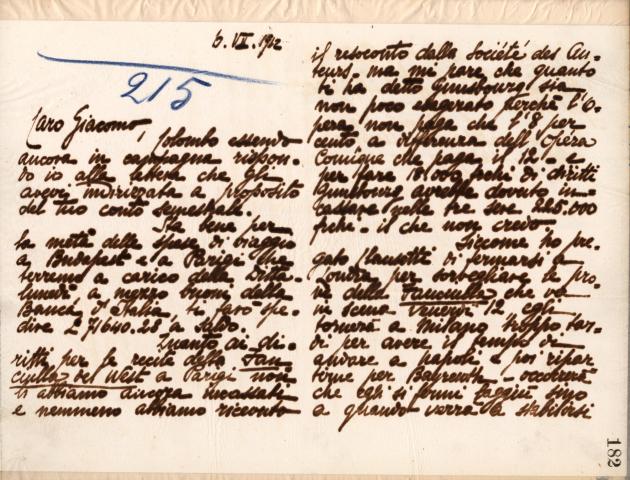 6. VII. 1912
215
Caro Giacomo,
Colombo essendo
ancora in campagna rispon-
do io alla lettera che gli
avevi indirizzata a proposito
del tuo conto semestrale.
Sta bene per
la metà delle spese di viaggio
a Budapest e a Parigi che
terremo a carico della Ditta.
Lunedì a mezzo buoni della
Banca d'Italia ti farò spe-
dire £ 71640.28 a saldo.
Quanto ai di-
ritti per le recite della Fan-
ciulla del West a Parigi non
li abbiamo ancora incassati
e nemmeno abbiamo ricevuto
il resoconto dalla Société des Au-
teurs, ma mi pare che quanto
ti ha detto Gunsbourg sia
non poco esagerato perchè l'O-
pera non paga che l'8 per
cento a differenza dell'Opéra
Comique che paga il 12 - e
per fare 18.000 frchi di diritti
Gunsbourg avrebbe dovuto in-
cassare nelle tre sere 225.000
frchi - il che non credo.
Siccome ho pre-
gato Clausetti di fermarsi a
Londra per sorvegliare le pro-
ve della Fanciulla che va
in scena Venerdì 12 egli
tornerà a Milano troppo tar-
di per avere il tempo di
andare a Napoli e poi ripar-
tirne per Bayreuth - occorrerà
che egli si fermi laggiù sino
a quando verrà a stabilirsi
182